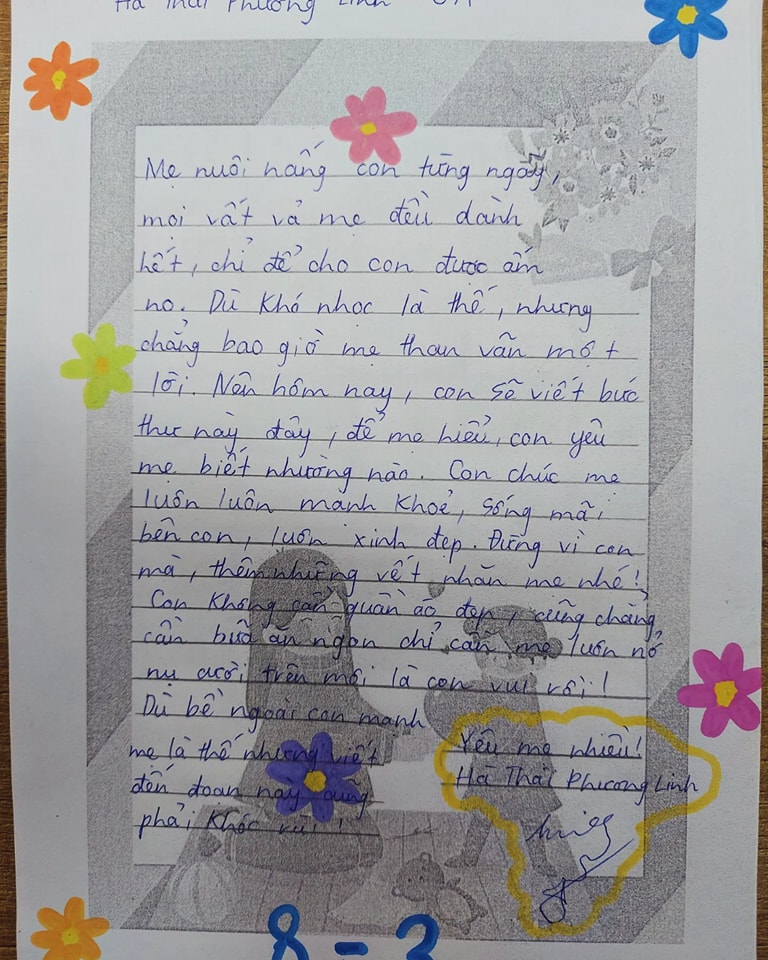 Hà Thái Phương Linh
Mẹ nuôi nấng con từng ngày,
mọi vất vả mẹ đều dành
hết, chỉ để cho con được ấm
no. Dù khó nhọc là thế, nhưng
chẳng bao giờ mẹ than vãn một
lời. Nên hôm nay, con sẽ viết bức
thư này đây, để mẹ hiểu, con yêu
mẹ biết nhường nào. Con chúc mẹ
luôn luôn mạnh khoẻ, sống mãi
bên con, luôn xinh đẹp. Đừng vì con
mà, thêm những vết nhăn mẹ nhé!
Con không cần quần áo đẹp, cũng chẳng
cần bữa ăn ngon chỉ cần mẹ luôn nở
nụ cười trên môi là con vui rồi!
Dù bề ngoài con mạnh
mẽ là thế nhưng viết
đến đoạn này cũng
phải khóc rùi!
Yêu mẹ nhiều!
Hà Thái Phương Linh
8-3